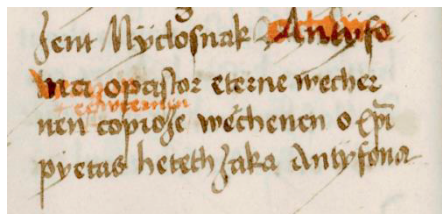 Zent Nÿclosnak Antÿfo
na opastor eterne wecher
nen copioze wechenen o xpi
pyetas heteth Zaka Antyfona